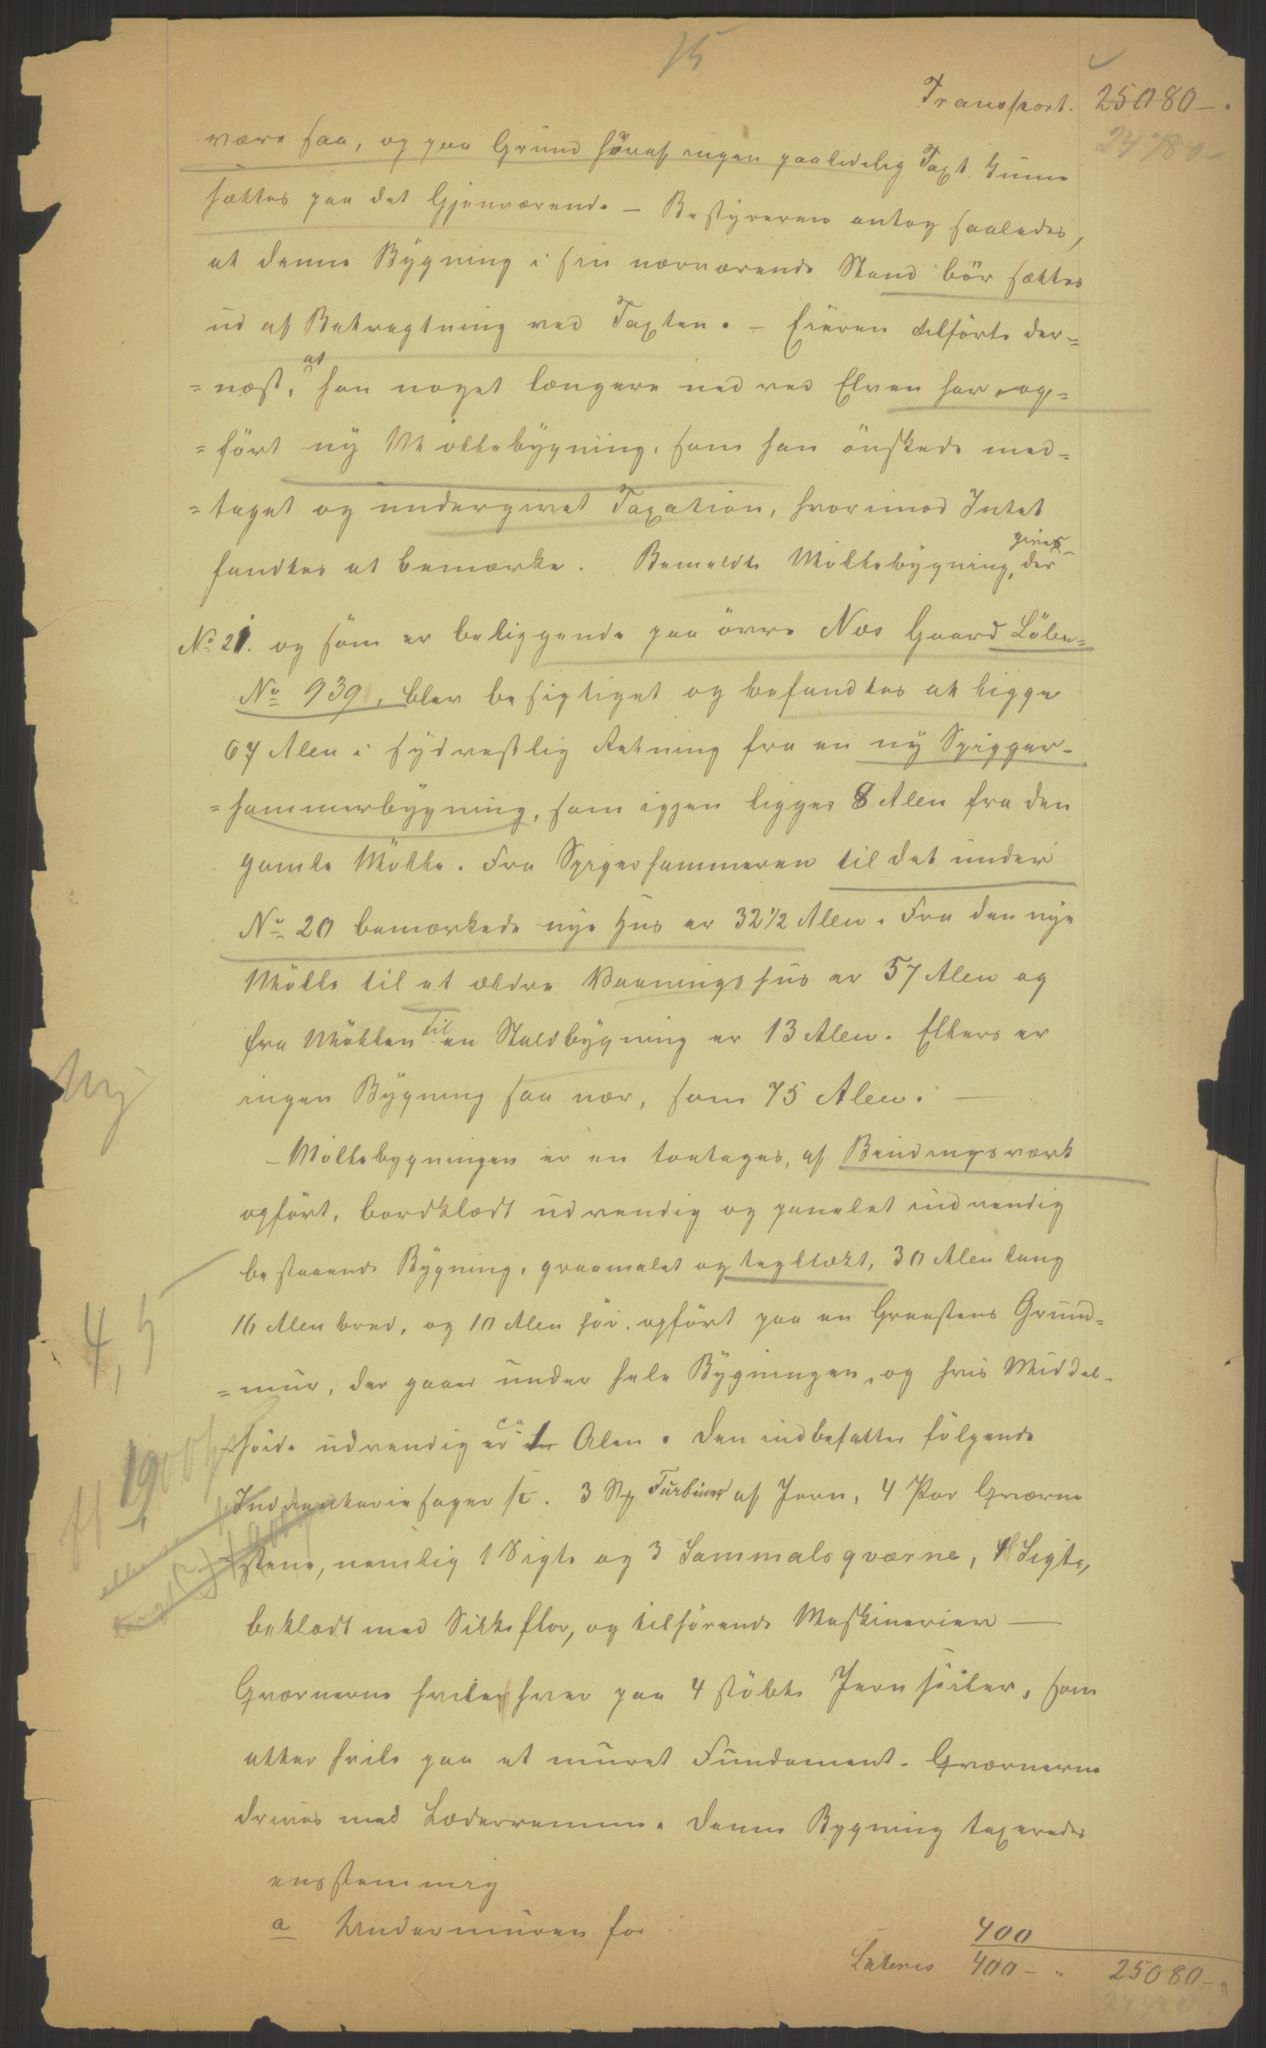 15
Transport. 25080 — .
24780 —
være saa, og paa Grund heraf ingen paalidelig Taxt kunne
sættes paa det Gjenværende — Bestyreren antog saaledes,
at denne Bygning i sin nærværende Stand bör sættes
ud af Betragtning ved Taxten. — Eieren tilförte der=
=næst, at han noget længere ned ved Elven har op=
=fört ny Möllebygning, som han önskede med=
=taget og undergivet Taxation, hvorimod Intet
fandtes at bemærke. Bemeldte Möllebygning, der gives
No 21. og som er beliggende paa övre Næs Gaard Löbe=
No 939, blev besigtiget og befandtes at ligge
67 Alen i sydvestlig Retning fra en ny Spiger-
=hammerbygning, som igjen ligger 8 Alen fra den
gamle Mölle. Fra Spigerhammeren til det under
No 20 bemærkede nye Hus er 32 1/2 Alen. Fra den nye
Mölle til et ældre Vaaningshus er 57 Alen og
fra Möllen til en Staldbygning er 13 Alen. Ellers er
ingen Bygning saa nær, som 75 Alen. —
Ny
— Möllebygningen er en toetages, af Bindingsværk
opfört, bordklædt udvendig og panelet indvendig
bestaaende Bygning, graamalet og teglækt, 30 Alen lang
16 Alen bred, og 10 Alen höi. opfört paa en Graastens Grund=
4,5
=mur, der gaaer under hele Bygningen, og hvis Middel-
höide udvendig er ca 1 Alen. Den indbefatter fölgende
Inventariesager sc. 3 St Turbiner af Jern, 4 Par Qværne
stene, nemlig 1 Sigte og 3 Sammalsqværne, 1 Sigte,
beklædt med Silkeflor, og tilhörende Maskinerier —
Qværnerne hviler hver paa 4 stöbte Jernsöiler, som
atter hvile paa et muret Fundament. Qværnerne
drives med Læderremme. Denne Bygning taxeredes
enstemmig
a Undermuren for 400
Lateris 400 — " 25080 — "
24780